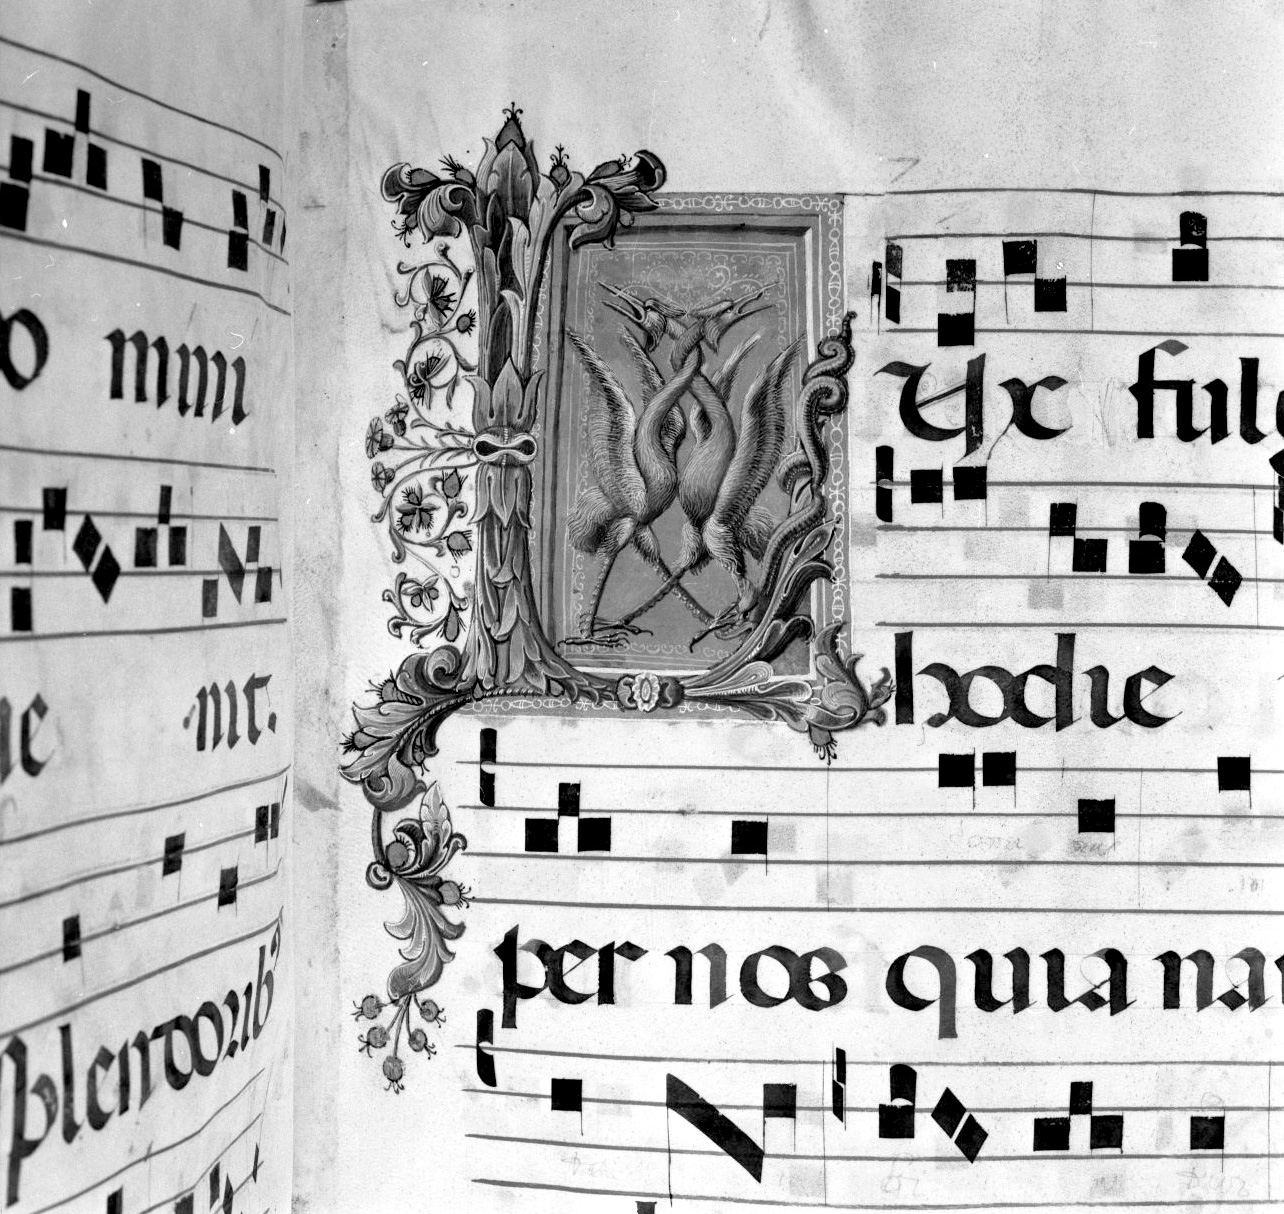 o mini
ne nit.
splendorib
L ux fulg
hodie
per nos quia na